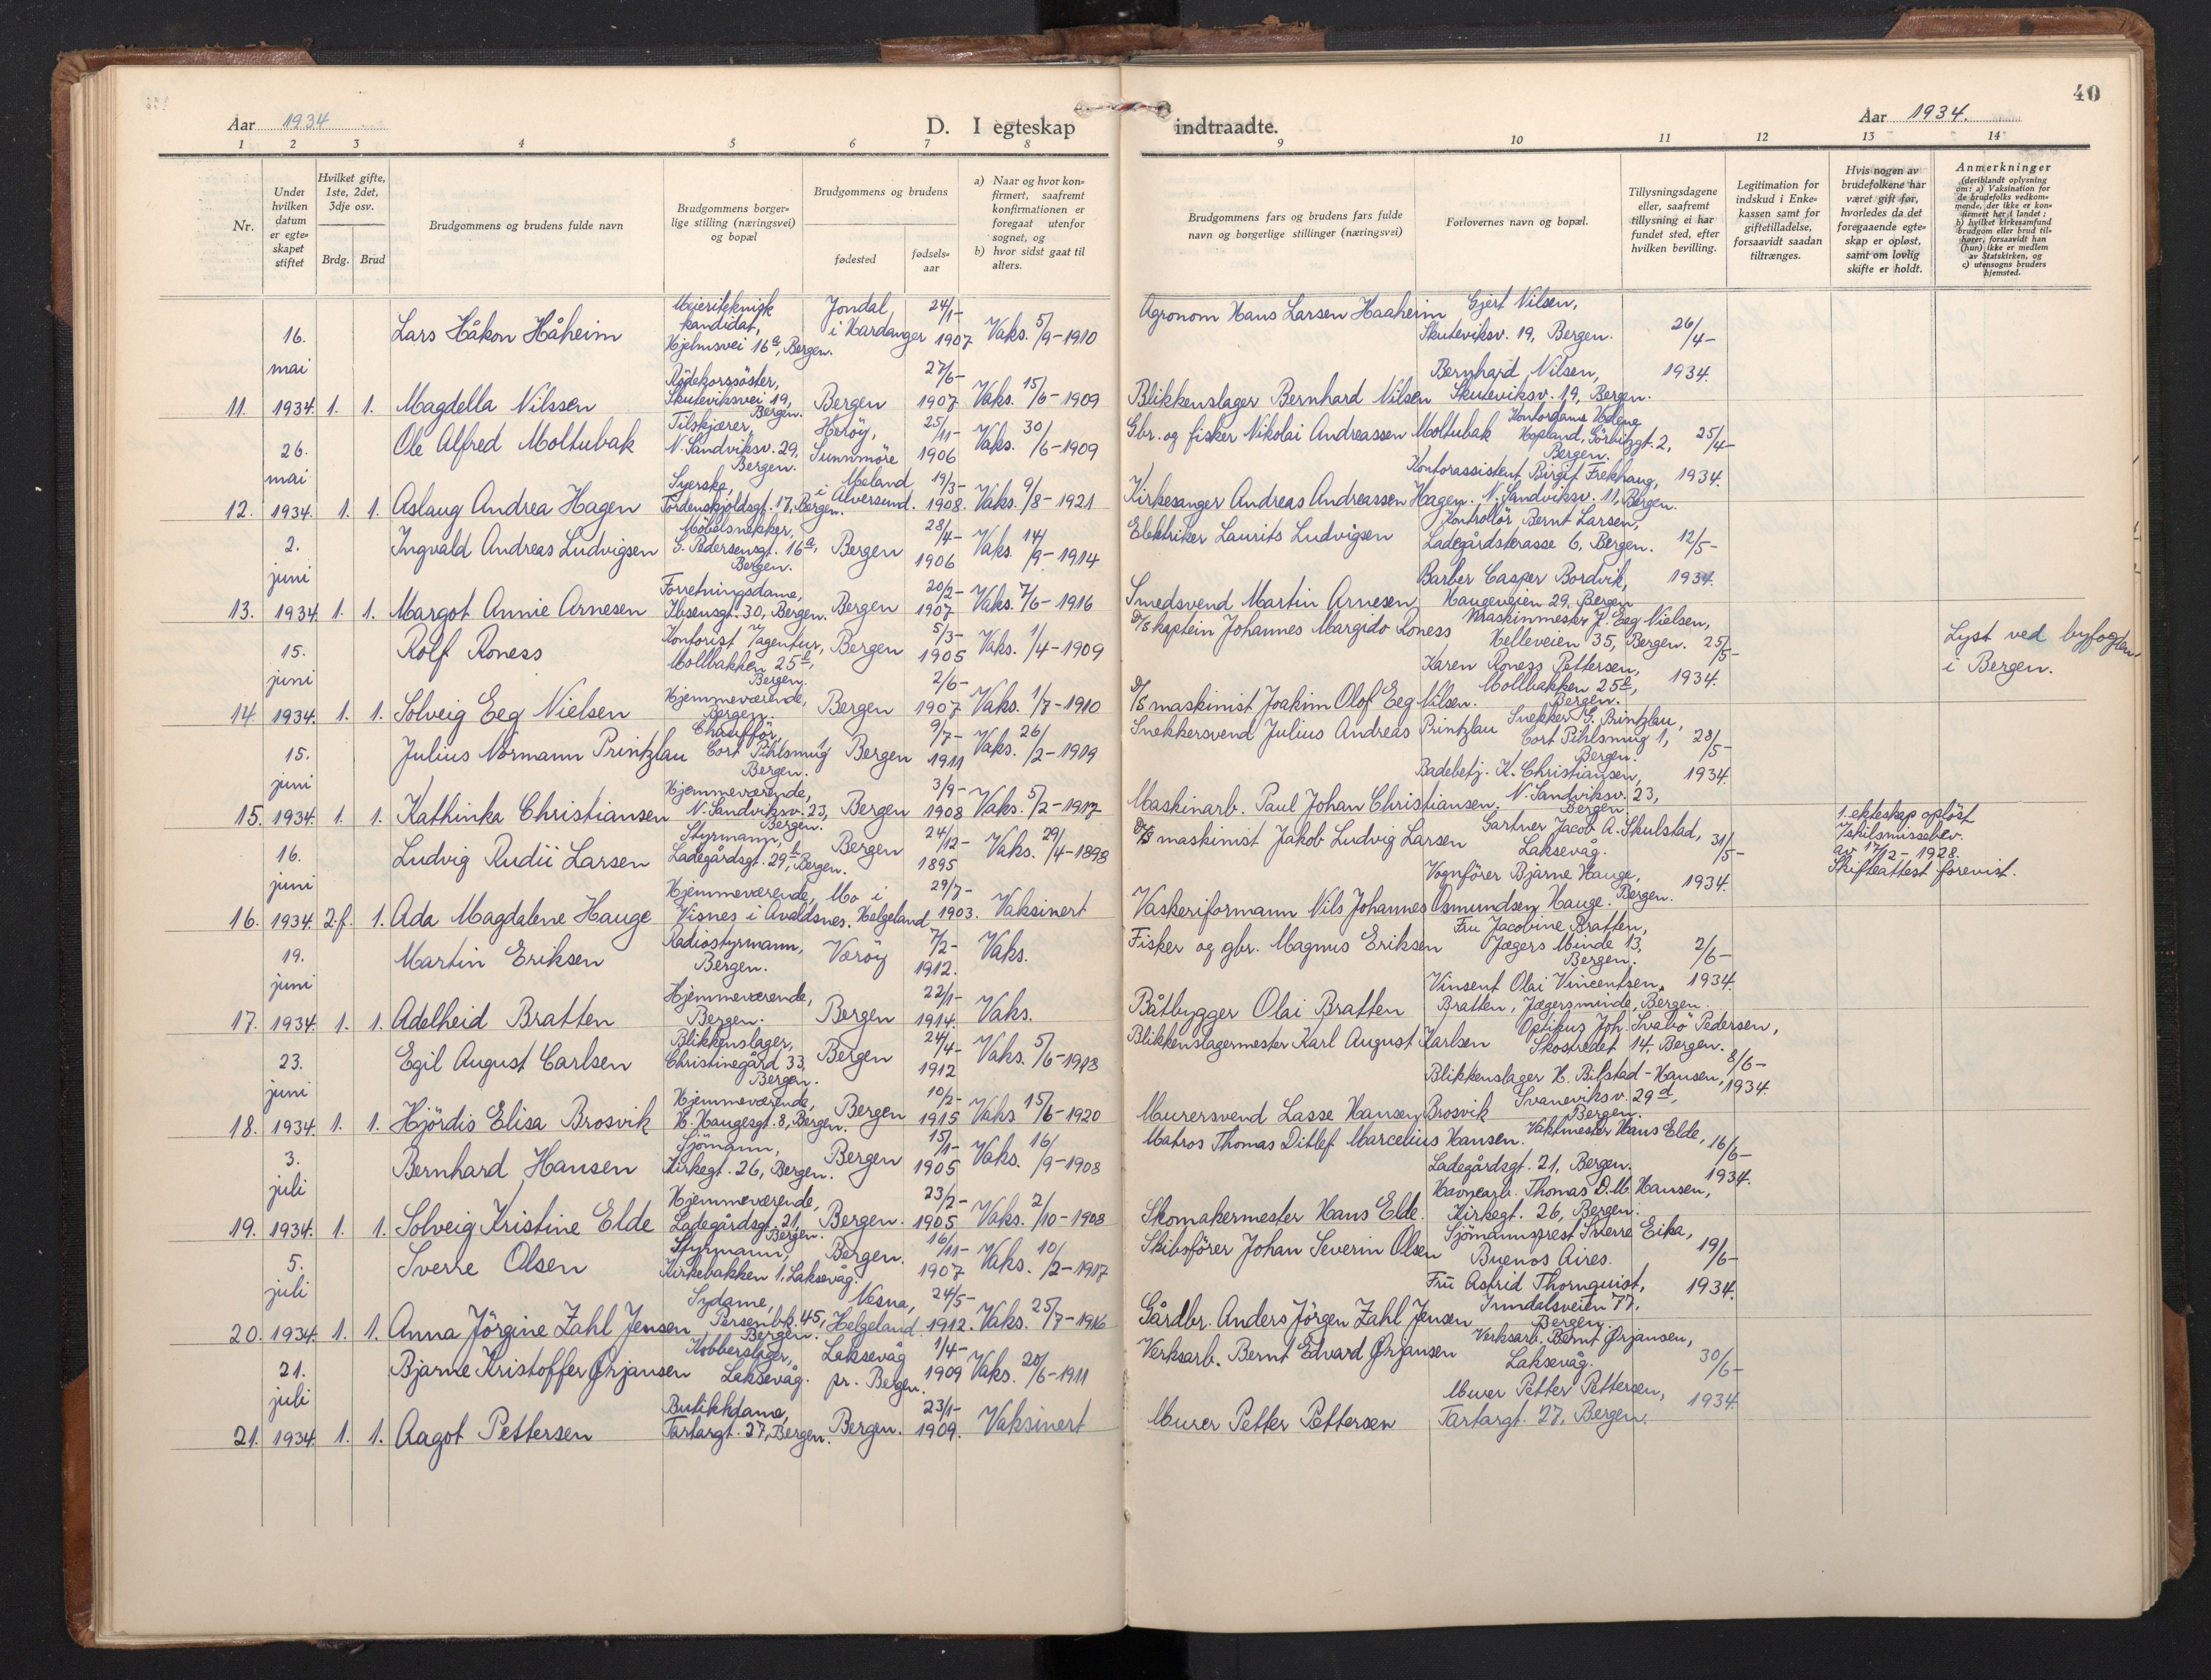 Aar 1934
D. I egteskap
indtraadte.
Aar 1934.
40
1 2 3 4 5 6 7 8 9 10 11 12 13 14
Nr.
Under hvilken datum er egteskapet stiftet
Hvilket gifte, 1ste, 2det, 3dje osv.
Brdg. Brud
Brudgommens og brudens fulde navn
Brudgommens borgerlige stilling (næringsvei) og bopæl
Brudgommens og brudens
fødested
fødselsaar
a) Naar og hvor konfirmert, saafremt konfirmationen er foregaat utenfor sognet, og
b) hvor sidst gaat til alters.
Brudgommens fars og brudens fars fulde navn og borgerlige stillinger (næringsvei)
Forlovernes navn og bopæl.
Tillysningsdagene eller, saafremt tillysning ei har fundet sted, efter hvilken bevilling.
Legitimation for indskud i Enkekassen samt for giftetilladelse, forsaavidt saadan tiltrænges.
Hvis nogen av brudefolkene har været gift før, hvorledes da det foregaaende egteskap er opløst, samt om lovlig skifte er holdt.
Anmerkninger
(deriblandt oplysning om: a) Vaksination for de brudefolks vedkommende, der ikke er konfirmert her i landet;
b) hvilket kirkesamfund brudgom eller brud tilhører, forsaavidt han (hun) ikke er medlem av Statskirken, og
c) utensogns bruders hjemsted.
16. mai Lars Håkon Håheim Meieriteknisk kandidat, Hjelmsvei 16a, Bergen. Jondal i Hardanger 24/1- 1907 Vaks. 5/9-1910 Agronom Hans Larsen Haaheim Gjert Nilsen, Skuteviksv. 19, Bergen. 26/4-
11. 1934. 1. 1. Magdella Nilssen Rødekorssöster, Skuteviksvei 19, Bergen. Bergen 27/6- 1907 Vaks. 15/6-1909 Blikkenslager Bernhard Nilsen Bernhard Nilsen, Skuteviksv. 19, Bergen. 1934.
26. mai Ole Alfred Moltubak Tilskjærer, N. Sandviksv. 29, Bergen. Heröy, Sunnmöre 25/11- 1906 Vaks. 30/6-1909 Gbr. og fisker Nikolai Andreassen Moltubak Kontordame Helene Hopland, Görbitzgt. 2, Bergen. 25/4-
12. 1934. 1. 1. Aslaug Andrea Hagen Syerske, Tordenskjoldsgt. 17, Bergen. Meland i Alversund. 19/3- 1908. Vaks. 9/8-1921 Kirkesanger Andreas Andreassen Hagen. Kontorassistent Birgit Frekhaug, N. Sandviksv. 11, Bergen. 1934.
2. juni Ingvald Andreas Ludvigsen Möbelsnekker, G. Pedersensgt. 16a, Bergen. Bergen 28/4- 1906 Vaks. 14/9-1914 Elektriker Laurits Ludvigsen Kontrollör Bernt Larsen, Ladegårdsterasse 6, Bergen. 12/5-
13. 1934. 1. 1. Margot Annie Arnesen Forretningsdame, Ibsensgt. 30, Bergen. Bergen 20/2- 1907 Vaks. 7/6-1916 Smedsvend Martin Arnesen Barber Casper Bordvik, Haugeveien 29, Bergen 1934.
15. juni Rolf Roness Kontorist i agentur, Mollbakken 25b, Bergen. Bergen 5/3- 1905 Vaks. 1/4-1909 D/S kaptein Johannes Margido Roness Maskinmester J. Eeg Nielsen, Helleveien 35, Bergen. 25/5- Lyst ved byfogden i Bergen.
14. 1934. 1. 1. Solveig Eeg Nielsen Hjemmeværende, Bergen. Bergen 2/6- 1907 Vaks. 1/7-1910 D/S maskinist Joakim Olof Eeg Nilsen. Karen Roness Pettersen, Mollbakken 25b, Bergen. 1934.
15. juni Julius Normann Printzlau Chaufför, Cort Pihlsmug 1 Bergen. Bergen 9/7- 1911 Vaks. 26/2-1919 Snekkersvend Julius Andreas Printzlau Snekker G. Printzlau, Cort Pihlsmug 1, Bergen. 28/5-
15. 1934. 1. 1. Kathinka Christiansen Hjemmeværende, N. Sandviksv. 23, Bergen. Bergen 3/9- 1908 Vaks. 5/2-1917 Maskinarb. Paul Johan Christiansen. Badebetj. K. Christiansen, N. Sandviksv. 23, Bergen 1934.
16. juni Ludvig Rudii Larsen Styrmann, Ladegårdsgt. 29b, Bergen. Bergen 24/12- 1895 Vaks. 29/4-1898 D/S maskinist Jakob Ludvig Larsen Gartner Jacob A. Skulstad, Laksevåg. 31/5- 1. ekteskap oplöst v/skilsmissebev. av 17/12-1928. Skifteattest forevist.
16. 1934. 2.f. 1. Ada Magdalene Hauge Hjemmeværende, Visnes i Avaldsnes. Mo i Helgeland 29/7- 1903. Vaksinert Vaskeriformann Nils Johannes Osmundsen Hauge. Vognförer Bjarne Hauge, Bergen. 1934.
19. juni Martin Eriksen Radiostyrmann, Bergen. Væröy 7/2- 1912. Vaks. Fisker og gbr. Magnus Eriksen Fru Jacobine Bratten, Jægers Minde 13, Bergen. 2/6-
17. 1934. 1. 1. Adelheid Bratten Hjemmeværende, Bergen. Bergen 22/1- 1914. Vaks. Båtbygger Olai Bratten Vinsent Olai Vincentsen Bratten, Jægersminde, Bergen. 1934.
23. juni Egil August Carlsen Blikkenslager, Christinegård 33, Bergen. Bergen 24/4- 1912 Vaks. 5/6-1918 Blikkenslagermester Karl August Karlsen Optikus Joh. Svabö Pedersen, Skostredet 14, Bergen. 8/6-
18. 1934. 1. 1. Hjördis Elisa Brosvik Hjemmeværende, H. Haugesgt. 8, Bergen. Bergen 10/2- 1915 Vaks 15/6-1920 Murersvend Lasse Hansen Brosvik Blikkenslager H. Bilstad-Hansen, Svaneviksv. 29a, Bergen. 1934.
3. juli Bernhard Hansen Sjömann, Kirkegt. 26, Bergen. Bergen 15/1- 1905 Vaks. 16/9-1908 Matros Thomas Ditlef Marcelius Hansen. Vaktmester Hans Elde, Ladegårdsgt. 21, Bergen. 16/6-
19. 1934. 1. 1. Solveig Kristine Elde Hjemmeværende, Ladegårdsgt. 21, Bergen. Bergen. 23/2- 1905 Vaks. 2/10-1908 Skomakermester Hans Elde. Havnearb. Thomas D.M. Hansen, Kirkegt. 26, Bergen. 1934.
5. juli Sverre Olsen Styrmann, Kirkebakken 1, Laksevåg. Bergen. 16/11- 1907 Vaks. 10/2-1917 Skibsförer Johan Severin Olsen Sjömannsprest Sverre Eika, Buenos Aires. 19/6-
20. 1934. 1. 1. Anna Jörgine Zahl Jensen Sydame, Persenbk. 45, Bergen. Nesna, Helgeland 24/5- 1912. Vaks. 25/7-1916 Gårdbr. Anders Jörgen Zahl Jensen Fru Astrid Thornquist, Inndalsveien 77, Bergen. 1934.
21. juli Bjarne Kristoffer Ørjansen Kobberslager, Laksevåg. Laksevåg pr. Bergen. 1/4- 1909 Vaks. 20/6-1911 Verksarb. Bernt Edvard Ørjansen Verksarb. Bernt Ørjansen, Laksevåg. 30/6-
21. 1934. 1. 1. Aagot Pettersen Butikkdame, Tartargt. 27, Bergen. Bergen. 23/1- 1909. Vaksinert Murer Petter Pettersen Murer Petter Pettersen, Tartargt. 27, Bergen. 1934.